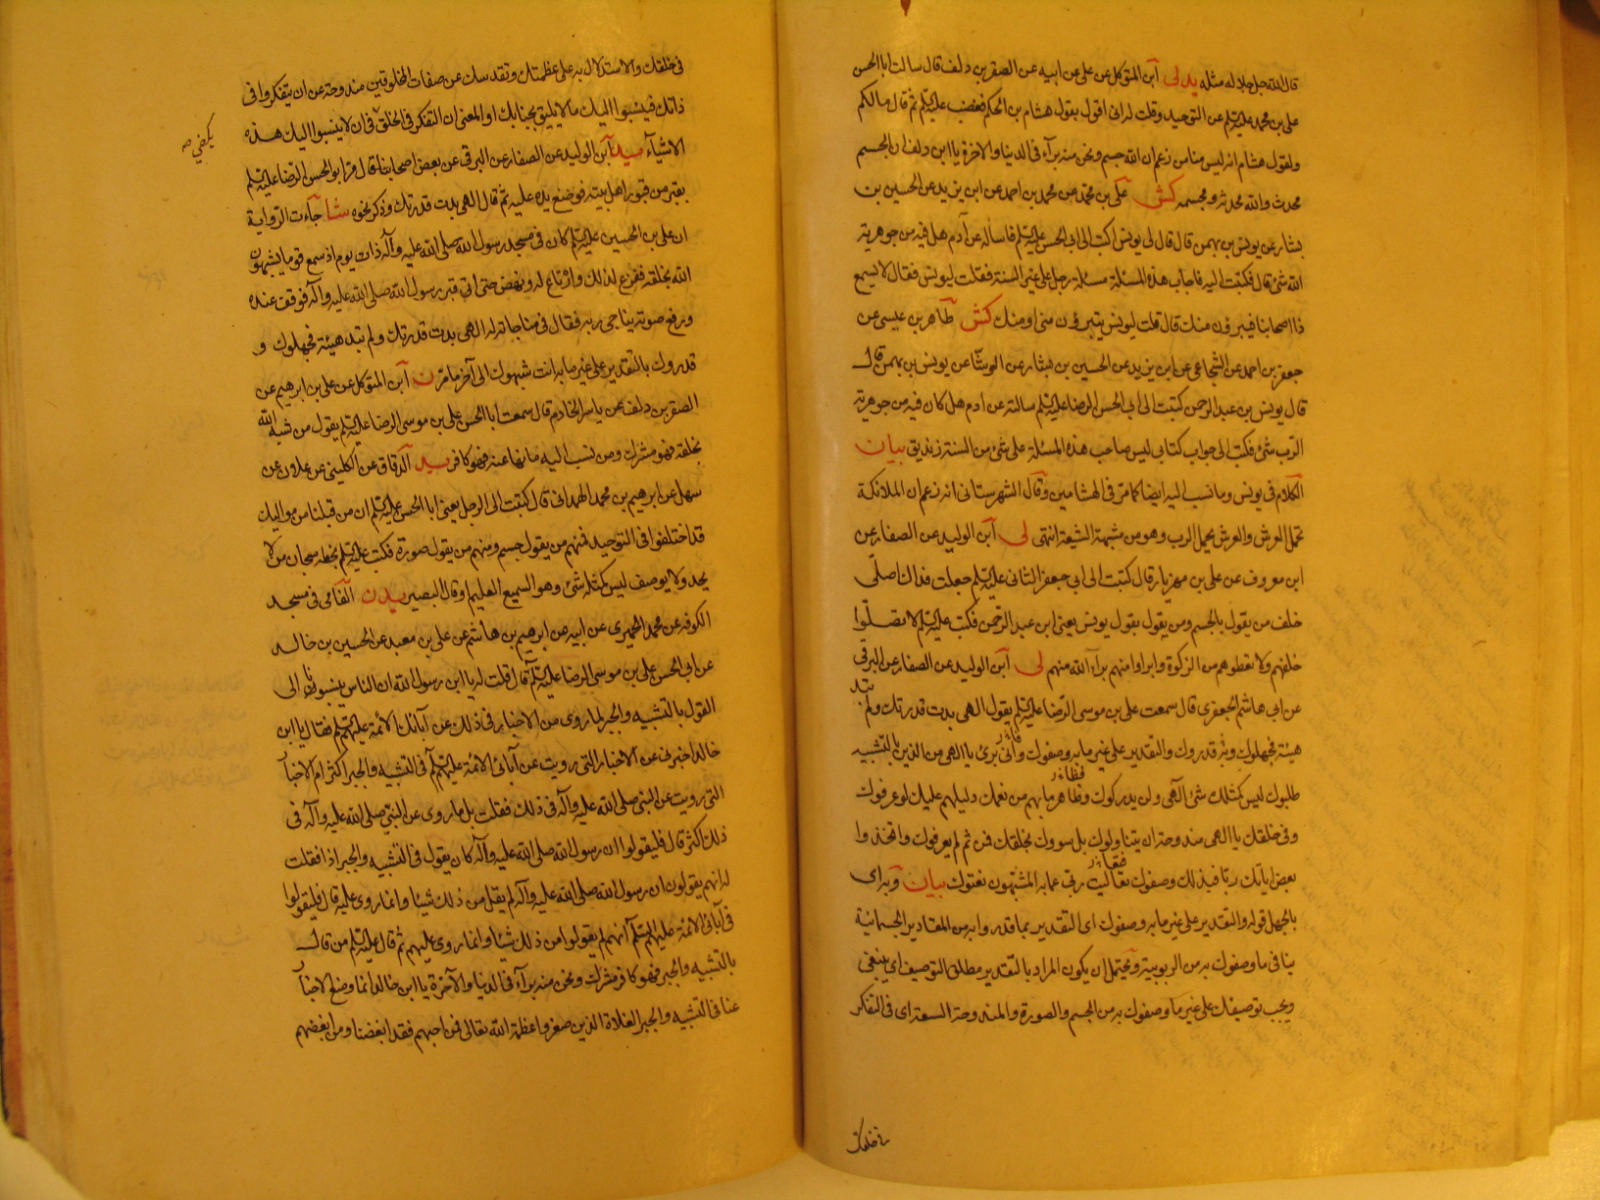 قال الله جل جلاله مثله يد لى ابن المتوكل عن على عن ابيه عن الصقر بن دلف قال سالت ابا الحسن
على بن محمد عليه السلم عن التوحيد وقلت له انى اقول بقول هشام بن الحكم فغضب عليه السلم ثم قال مالكم
ولقول هشام انه ليس منا من زعم ان الله جسم ونحن منه برآء فى الدنيا والاخرة يا ابن دلف ان الجسم
محدث والله محدثه ومجسمه كش على بن محمد عن محمد بن احمد عن ابن يزيد عن الحسين بن
بشار عن يونس بن بهمن قال قال لى يونس اكتب الى ابى الحسن عليه السلم فاساله عن آدم هل فيه من جوهرية
الله شئ قال فكتبت اليه فاجاب هذه المسئلة مسئلة رجل على غير السنة فقلت ليونس فقال لا يسمع
ذا اصحابنا فيبرؤن منك قال قلت ليونس يتبرؤن منى او منك كش طاهر بن عيسى عن
جعفر بن احمد عن الشجاعى عن ابن يزيد عن الحسين بن بشار عن الوشا عن يونس بن بهمن قال
قال يونس بن عبد الرحمن كتبت الى ابى الحسن الرضا عليه السلم سالته عن ادم هل كان فيه من جوهرية
الرب شئ فكتب الى جواب كتابى ليس صاحب هذه المسئلة على شئ من السنة زنديق بيان
الكلام فى يونس وما نسب اليه ايضا كما مر فى الهشامين وقال الشهرستانى انه زعم ان الملائكة
تحمل العرش والعرش يحمل الرب وهو من مشبهة الشيعة انتهى لى ابن الوليد عن الصفار عن
ابن معروف عن على بن مهزيار قال كتبت الى ابى جعفر الثانى عليه السلم جعلت فداك اصلى
خلف من يقول بالجسم ومن يقول بقول يونس يعنى ابن عبد الرحمن فكتب عليه السلم لا تصلوا
خلفهم ولا تعطوهم من الزكوة وابراوا منهم براء الله منهم لى ابن الوليد عن الصفار عن البرقى
عن ابى هاشم الجعفرى قال سمعت على بن موسى الرضا عليه السلم يقول الهى بدت قدرتك ولم تبد
هيئة فجهلوك وبه قدروك والتقدير على غير ما به وصفوك وانى برئ يا الهى من الذين بالتشبيه
طلبوك ليس كمثلك شئ آلهى ولن يدركوك وظاهر ما بهم من نعمك دليلهم عليك لو عرفوك
وفى خلقك يا الهى مندوحة ان يتناولوك بل سووك بخلقك فمن ثم لم يعرفوك واتخذوا
بعض اياتك ربا فبذلك وصفوك تعاليت ربى عما به المشبهون نعتوك بيان وبه اى
بالجهل قوله والتقدير على غير ما به وصفوك اى التقدير بما قدروا به من المقادير الجسمانية
ينافى ما وصفوك به من الربوبية ويحتمل ان يكون المراد بالتقدير مطلق التوصيف اى ينبغى
ويجب توصيفك على غير ما وصفوك به من الجسم والصورة والمندوحة السعة اى فى التفكر
فى خلقك
فى خلقك والاستدلال به على عظمتك وتقدسك عن صفات المخلوقين مندوحة عن ان يتفكروا فى
ذاتك فينسبوا اليك ما لا يليق بجنابك او المعنى ان التفكر فى الخلق فى ان لا ينسبوا اليك هذه
يكفى صه
الاشيآء سيد ابن الوليد عن الصفار عن البرقى عن بعض اصحابنا قال مر ابو الحسن الرضا عليه السلم
بقبر من قبور اهل بيته فوضع يده عليه ثم قال الهى بدت قدرتك وذكر نحوه شا جآءت الرواية
ان على بن الحسين عليه السلم كان فى مسجد رسول الله صلى الله عليه وآله ذات يوم اذ سمع قوما يشبهون
الله بخلقه ففزع لذلك وارتاع له ونهض حتى اتى قبر رسول الله صلى الله عليه وآله فوقف عنده
ورفع صوته يناجى ربه فقال فى مناجاته له الهى بدت قدرتك ولم تبد هيئة فجهلوك و
قدروك بالتقدير على غير ما به انت شبهوك الى آخر ما مر ن ابن المتوكل عن على بن ابرهيم عن
الصقر بن دلف عن ياسر الخادم قال سمعت ابا الحسن على بن موسى الرضا عليه السلم يقول من شبه الله
بخلقه فهو مشرك ومن نسب اليه ما نها عنه فهو كافر يد الدقاق عن الكلينى عن علان عن
سهل عن ابرهيم بن محمد الهمدانى قال كتبت الى الرجل يعنى ابا الحسن عليه السلم ان من قبلنا من مواليك
قد اختلفوا فى التوحيد فمنهم من يقول جسم ومنهم من يقول صورة فكتب عليه السلم بخطه سبحان من لا
يحد ولا يوصف ليس كمثله شئ وهو السميع العليم او قال البصير يد ن الفامى فى مسجد
الكوفة عن محمد الحميرى عن ابيه عن ابرهيم بن هاشم عن على بن معبد عن الحسين بن خالد
عن ابى الحسن على بن موسى الرضا عليه السلم قال قلت له يا ابن رسول الله ان الناس ينسبوننا الى
القول بالتشبيه والجبر لما روى من الاخبار فى ذلك عن آبائك الائمة عليهم السلم فقال يا ابن
خالد اخبرنى عن الاخبار التى رويت عن آبائى الائمة عليهم السلم فى التشبيه والجبر اكثر ام الاخبار
التى رويت عن النبى صلى الله عليه وآله فى ذلك فقلت بل ما روى عن النبى صلى الله عليه وآله فى
ذلك اكثر قال فليقولوا ان رسول الله صلى الله عليه وآله كان يقول فى التشبيه والجبر اذا فقلت
له انهم يقولون ان رسول الله صلى الله عليه وآله لم يقل من ذلك شيئا وانما روى عليه قال فليقولوا
فى آبائى الائمة عليهم السلم انهم لم يقولوا من ذلك شيئا وانما روى عليهم ثم قال عليه السلم من قال
بالتشبيه والجبر فهو كافر مشرك ونحن منه برآء فى الدنيا والآخرة يا ابن خالد انما وضع الاخبار
عنا فى التشبيه والجبر الغلاة الذين صغروا عظمة الله تعالى فمن احبهم فقد ابغضنا ومن ابغضهم